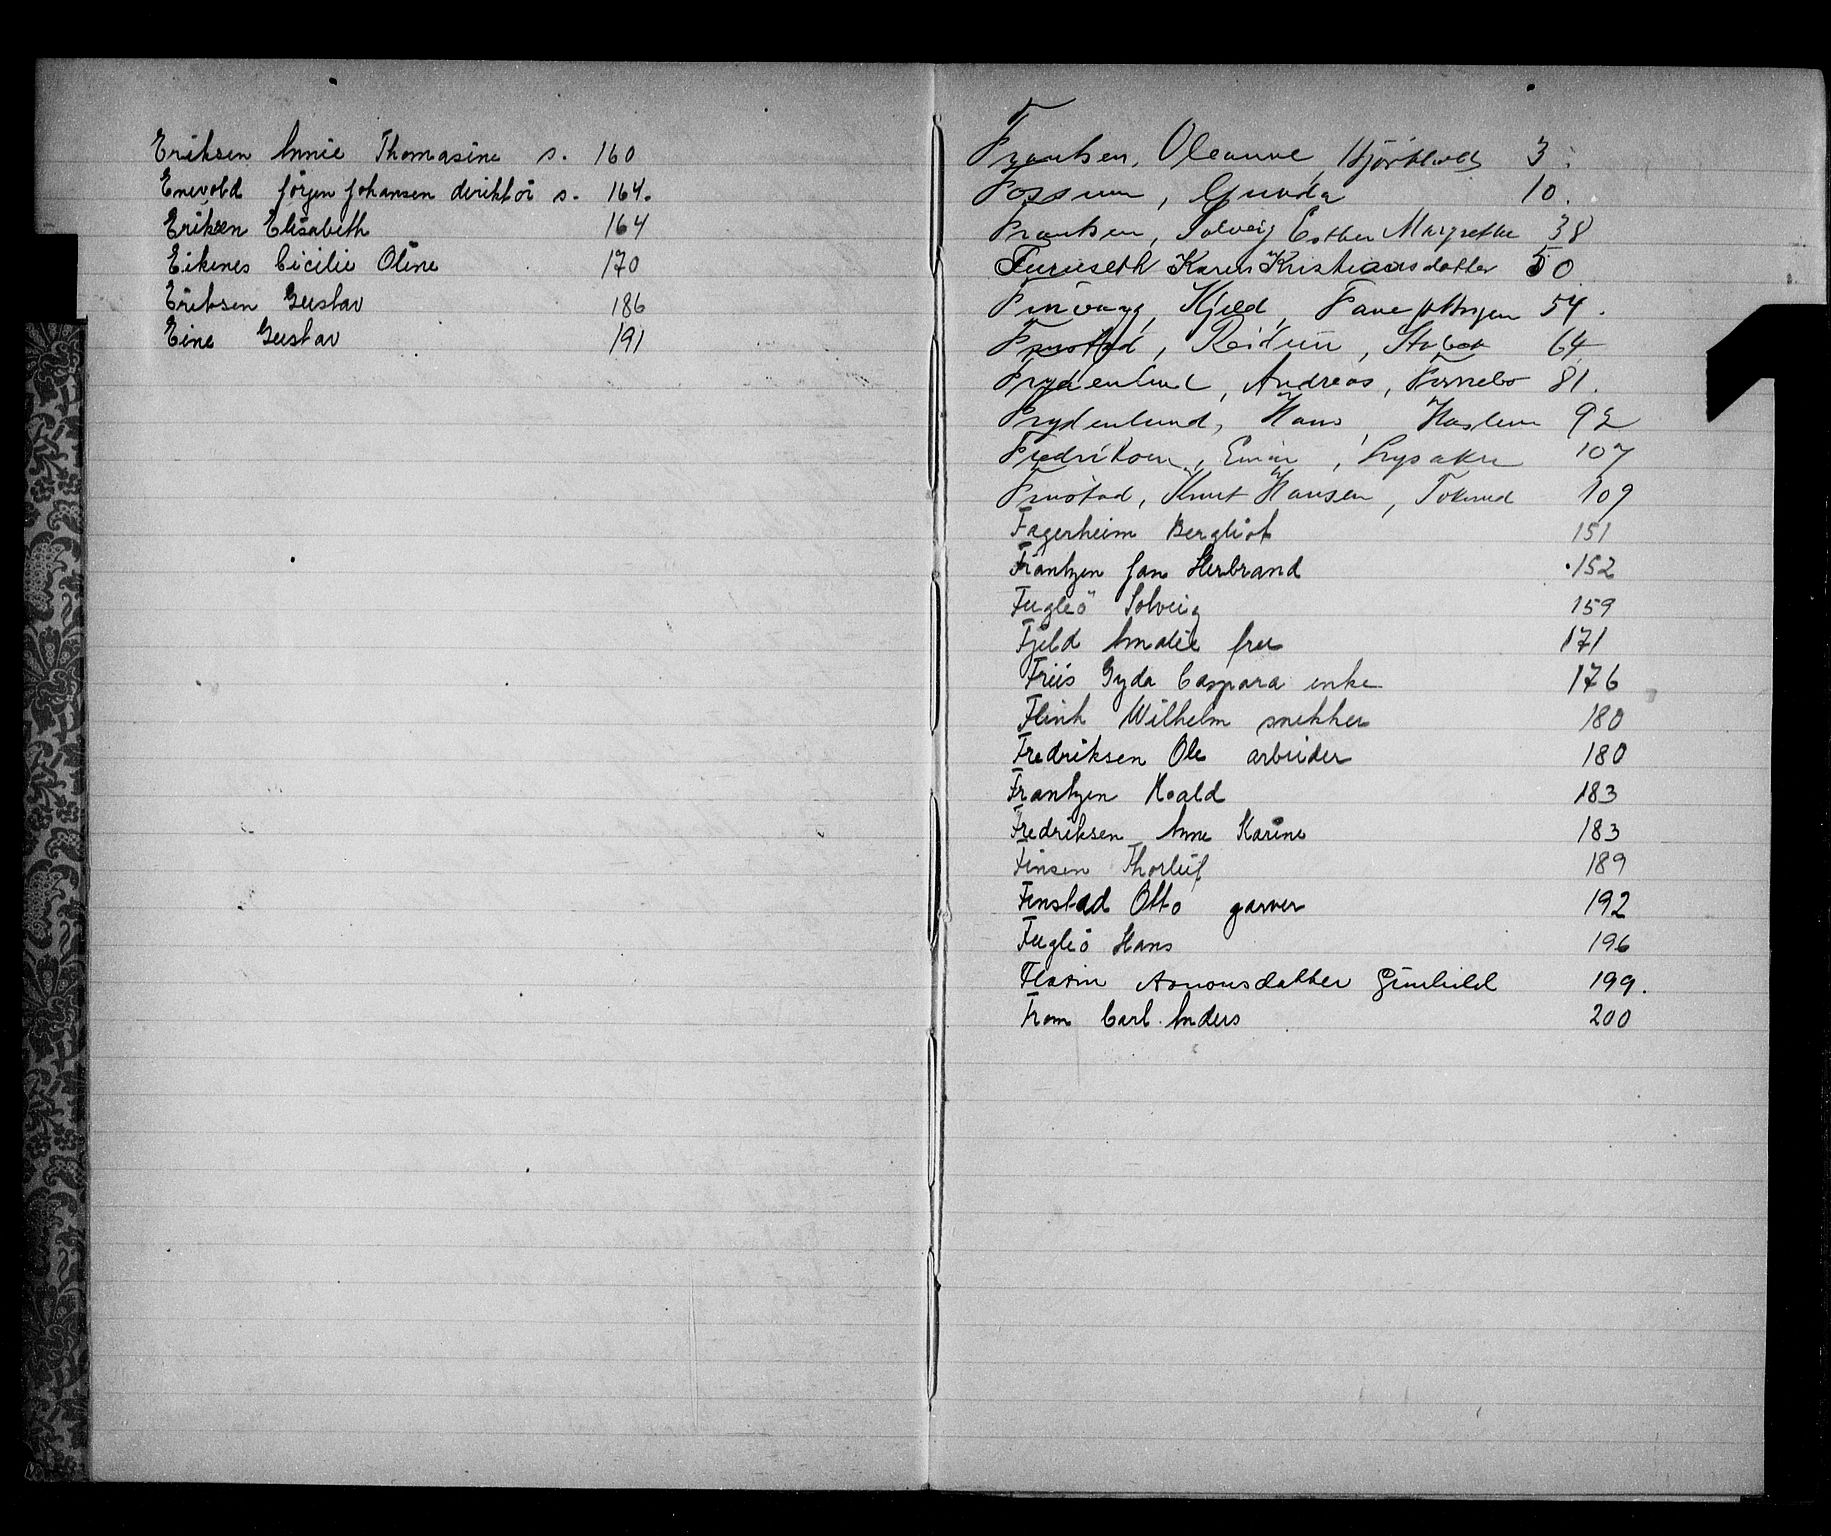 Eriksen Annie Thomasine s. 160
Enevold Jörgen Johansen direktör s. 164.
Eriksen Elisabeth 164
Eikenes Cicilie Oline 170
Eriksen Gustav 186
Eine Gustav 191
Frantsen, Oleanne, 3
Fossum, Gunda 10.
Frantsen, Solveig Esther Margrethe 38
Furuseth Karen Kristiansdatter 50
Kjeld, 54.
Reidun, Stabek 64
Frydenlund, Andreas, Fornebo 81.
Frydenlund, Hans, Haslum 92
Fredriksen, Einar, Lysaker 107
Knut Hansen, 109
Fagerheim Bergliot 151
Frantzen Jan Herbrand 152
Fugleö Solveig 159
Fjeld Amalie frue 171
Friis Gyda Caspara enke 176
Flink Wilhelm snekker 180
Fredriksen Ole arbeider 180
Frantzen Roald 183
Fredriksen Anne Karine 183
Finsen Thorleif 189
Finstad Otto garver 192
Fugleö Hans 196
Gunhild 199.
From Carl Anders 200